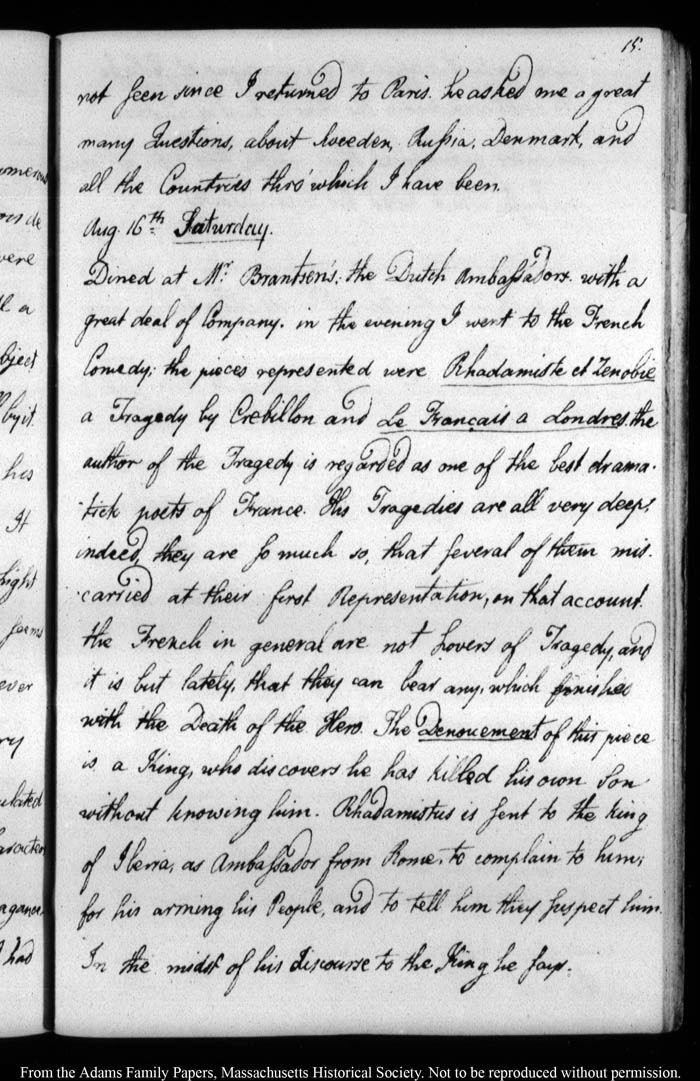 15.
not seen since I returned to Paris. he asked me a great
many Questions, about Sweeden, Russia, Denmark, and
all the Countries thro' which I have been.
Aug. 16th Saturday.
Dined at Mr. Brantsen's; the Dutch Ambassadors. with a
great deal of Company. in the evening I went to the French
Comedy; the pieces represented were Rhadamiste et Zenobie
a Tragedy by Crebillon and Le Français a Londres. the
author of the Tragedy is regarded as one of the best drama-
-tick poets of France. His Tragedies are all very deep:
indeed, they are so much so, that several of them mis-
-carried at their first Representation, on that account.
the French in general are not Lovers of Tragedy, and
it is but lately, that they can bear any, which finishes
with the Death of the Hero. The Denouement of this piece
is a King, who discovers he has killed his own Son
without knowing him. Rhadamistus is sent to the king
of Iberia, as Ambassador from Rome, to complain to him,
for his arming his People, and to tell him they suspect him.
In the midst of his discourse to the King he says.
ever
his
It
seems
had
From the Adams Family Papers, Massachusetts Historical Society. Not to be reproduced without permission.